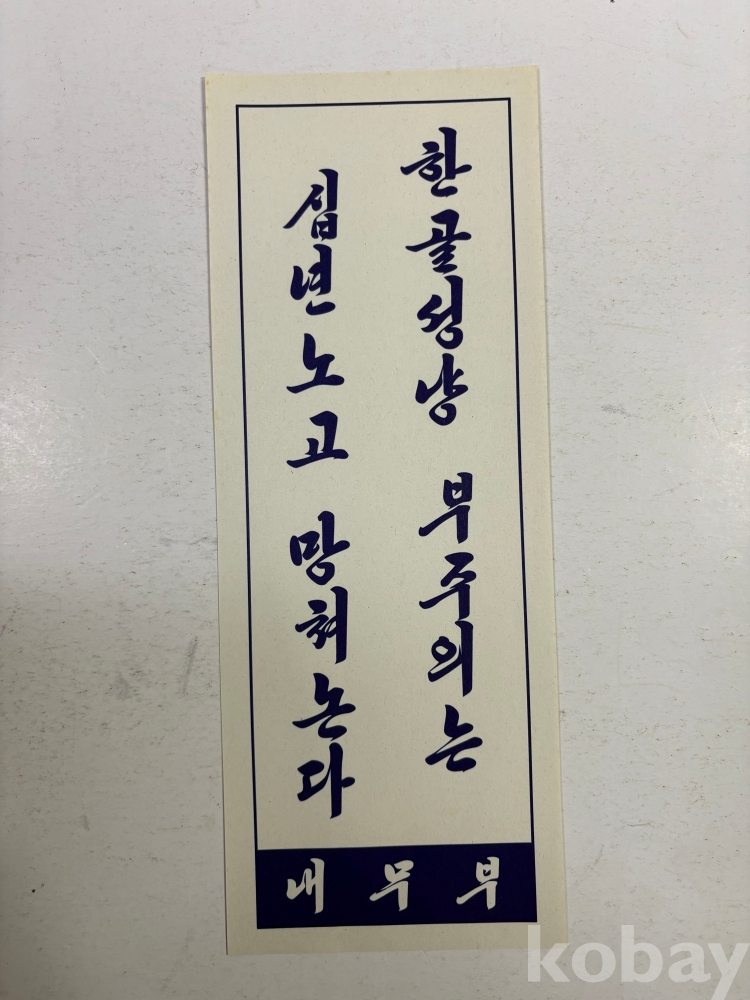 한골성냥 부주의는
십년노고 망쳐논다
내무부
kobay